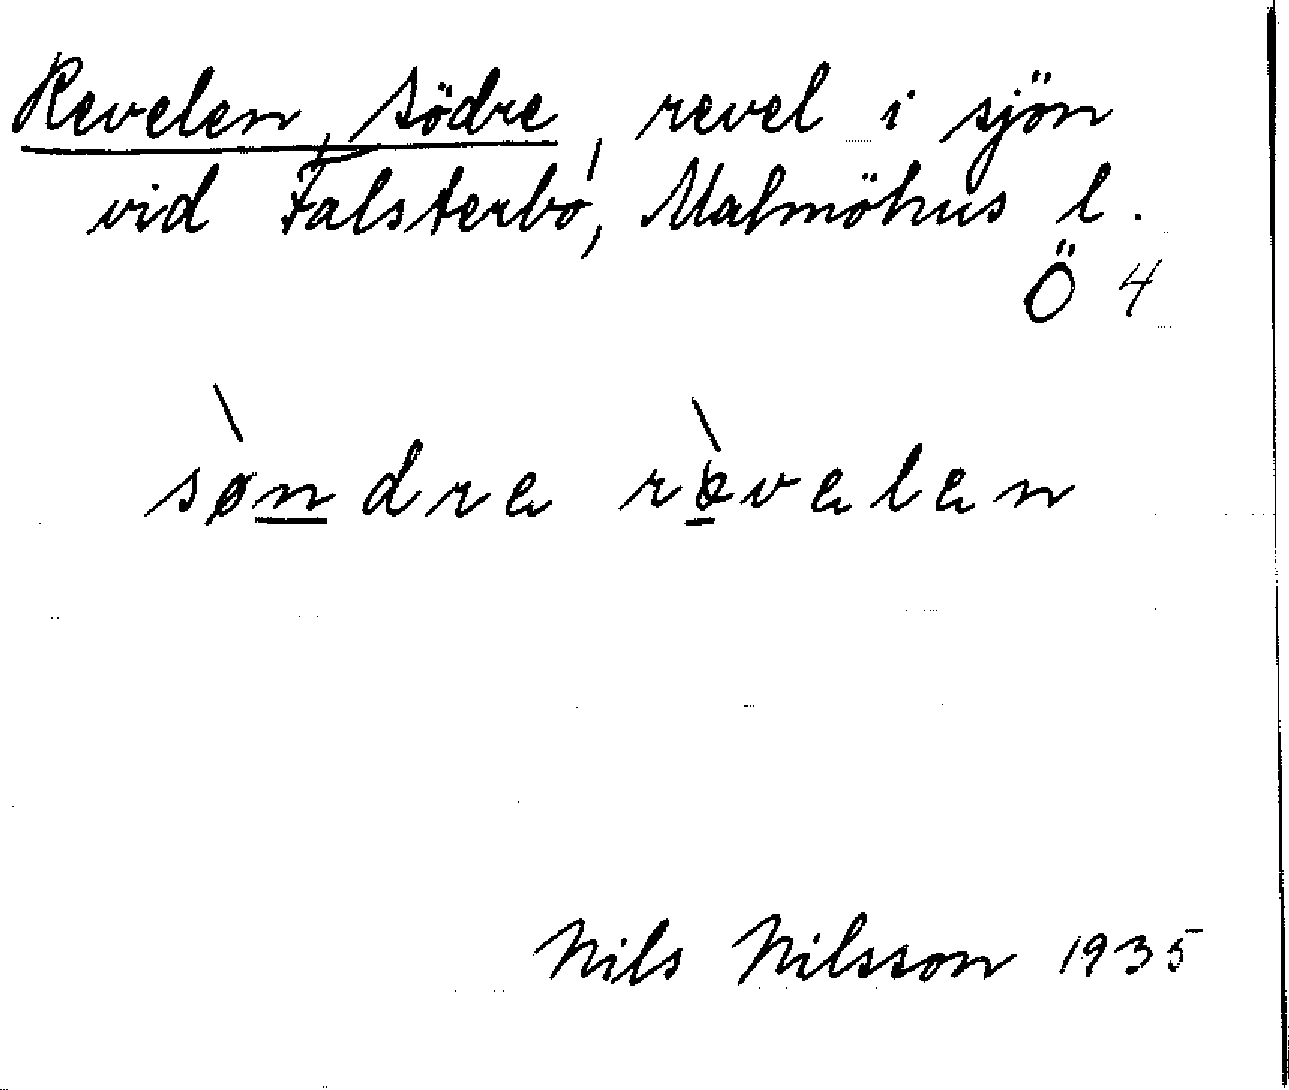 Revelen, Södre, revel i sjön
vid Falsterbo, Malmöhus l.
Ö 4
søndre revelen
Nils Nilsson 1935